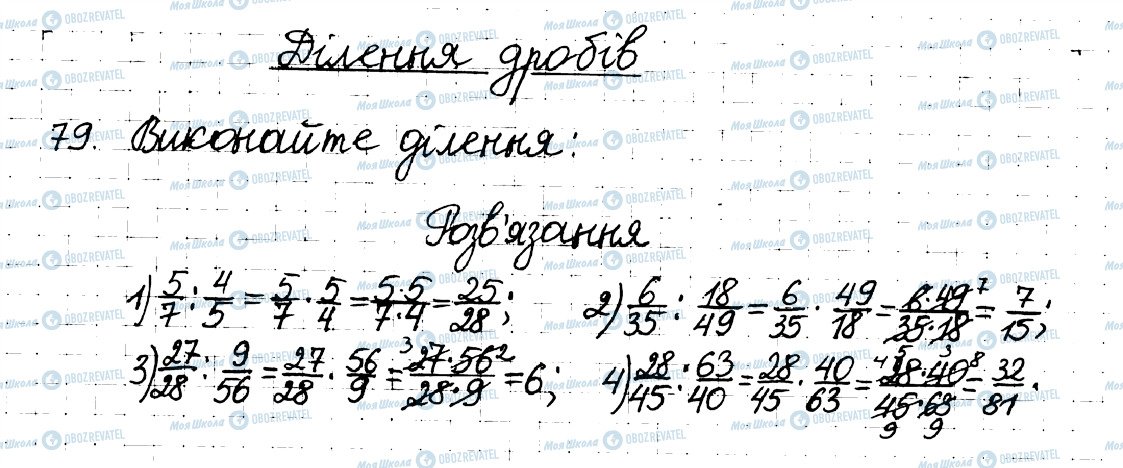 Ділення дробів
79. Виконайте ділення:
Розв'язання
1) 5/7 : 4/5 = 5/7 · 5/4 = 5·5/7·4 = 25/28; 2) 6/35 : 18/49 = 6/35 · 49/18 = 6·49 7/35·18 = 7/15;
3) 27/28 : 9/56 = 27/28 · 56/9 = 3 27·56 2/28·9 = 6; 4) 28/45 : 63/40 = 28/45 · 40/63 = 4 28·40 8/45·63 = 32/81.
5 3
9 9
МояШкола OBOZREVATEL